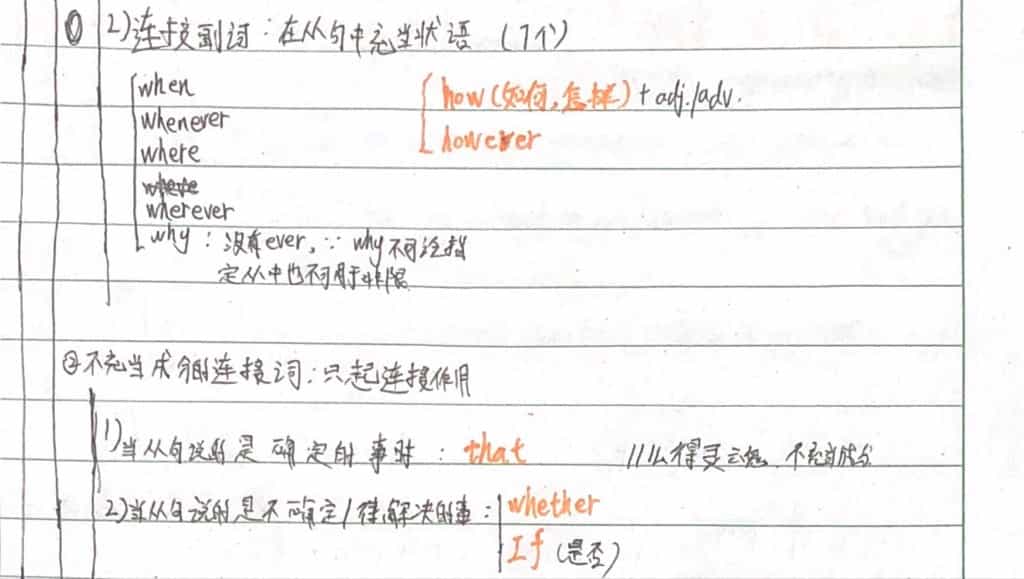 ① 2)连接副词:在从句中充当状语 (7个)
when
whenever
where
wherever
why : 没有ever, ∵ why不可泛指
定从中也不可用于非限
how(如何,怎样)+ adj./adv.
however
②不充当成分的连接词:只起连接作用
1)当从句说的是 确定的事时 : that
不充当成分
2)当从句说的是不确定/待解决的事 : whether
If (是否)